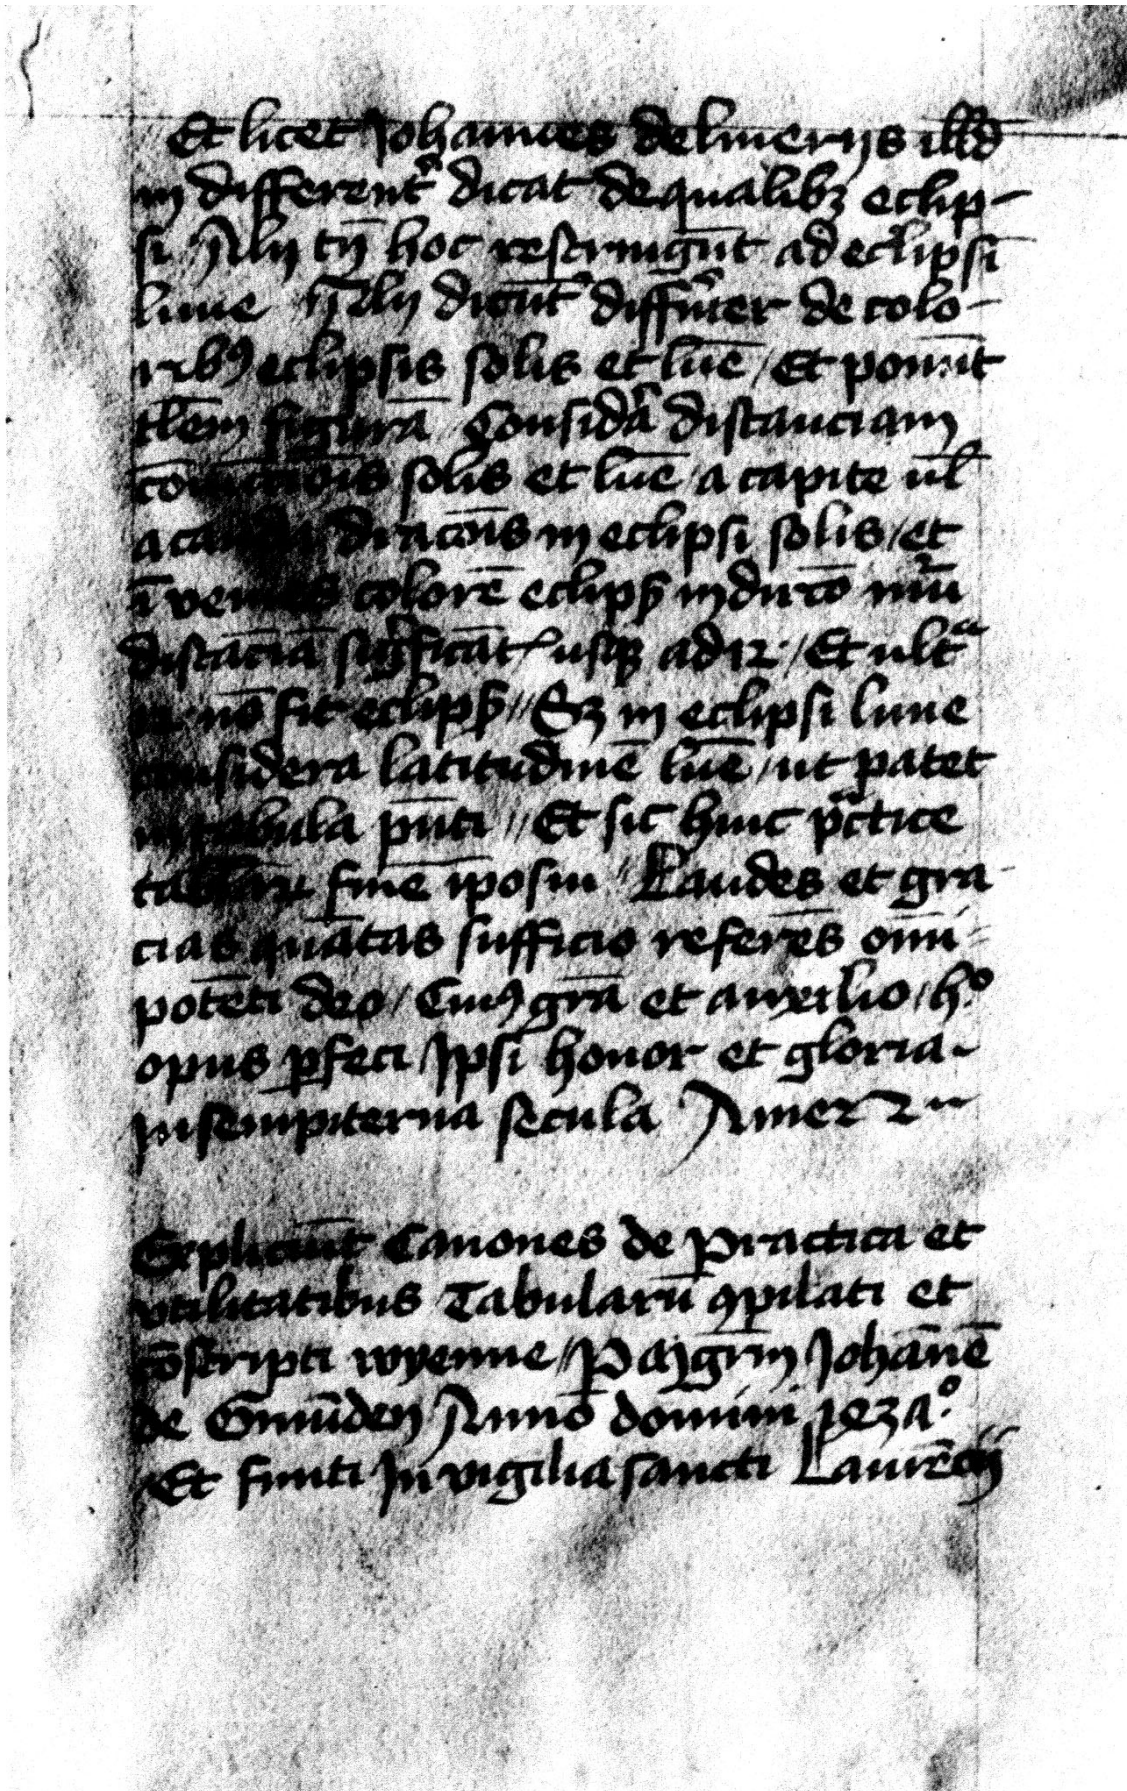 Et licet Johannes de lineriis illd
in differentr dicat de qualibz eclip-
si Alii tn̄ hoc restringūt ad eclipsī
lune Alii dicūt differēter de colo-
ribꝯ eclipsis solis et lūe / Et ponūt
tlēm figurā Considra distanciam
cōiūctiōis solis et lūe a capite ul̄
a cauda dracōnis in eclipsi solis / et
īvenies colorē eclipsꝭ in
distāciā sigficāt usqꝫ ad 12 // Et ultª
12 nō fit eclipsꝭ // Sꝫ in eclipsi lune
considera latitudinē lūe / ut patet
in tabula pn̄ti // Et sic huic prctice
tabularꝝ finē īposui // Laudes et gra-
cias quātas sufficio referēs om̄i=
potēti deo / Cuiꝯ grā et auxilio / hº
opus ꝑfeci Ipsi honor et gloria
In sempiterna secula Amen
Expliciūt Canones de Practica et
utilitatibus Tabularū ꝯpilati et
cōscripti wyenne / P Magrm̄ Johānē
de Gmūden Anno domini
Et finiti In vigilia sancti Laurēcij